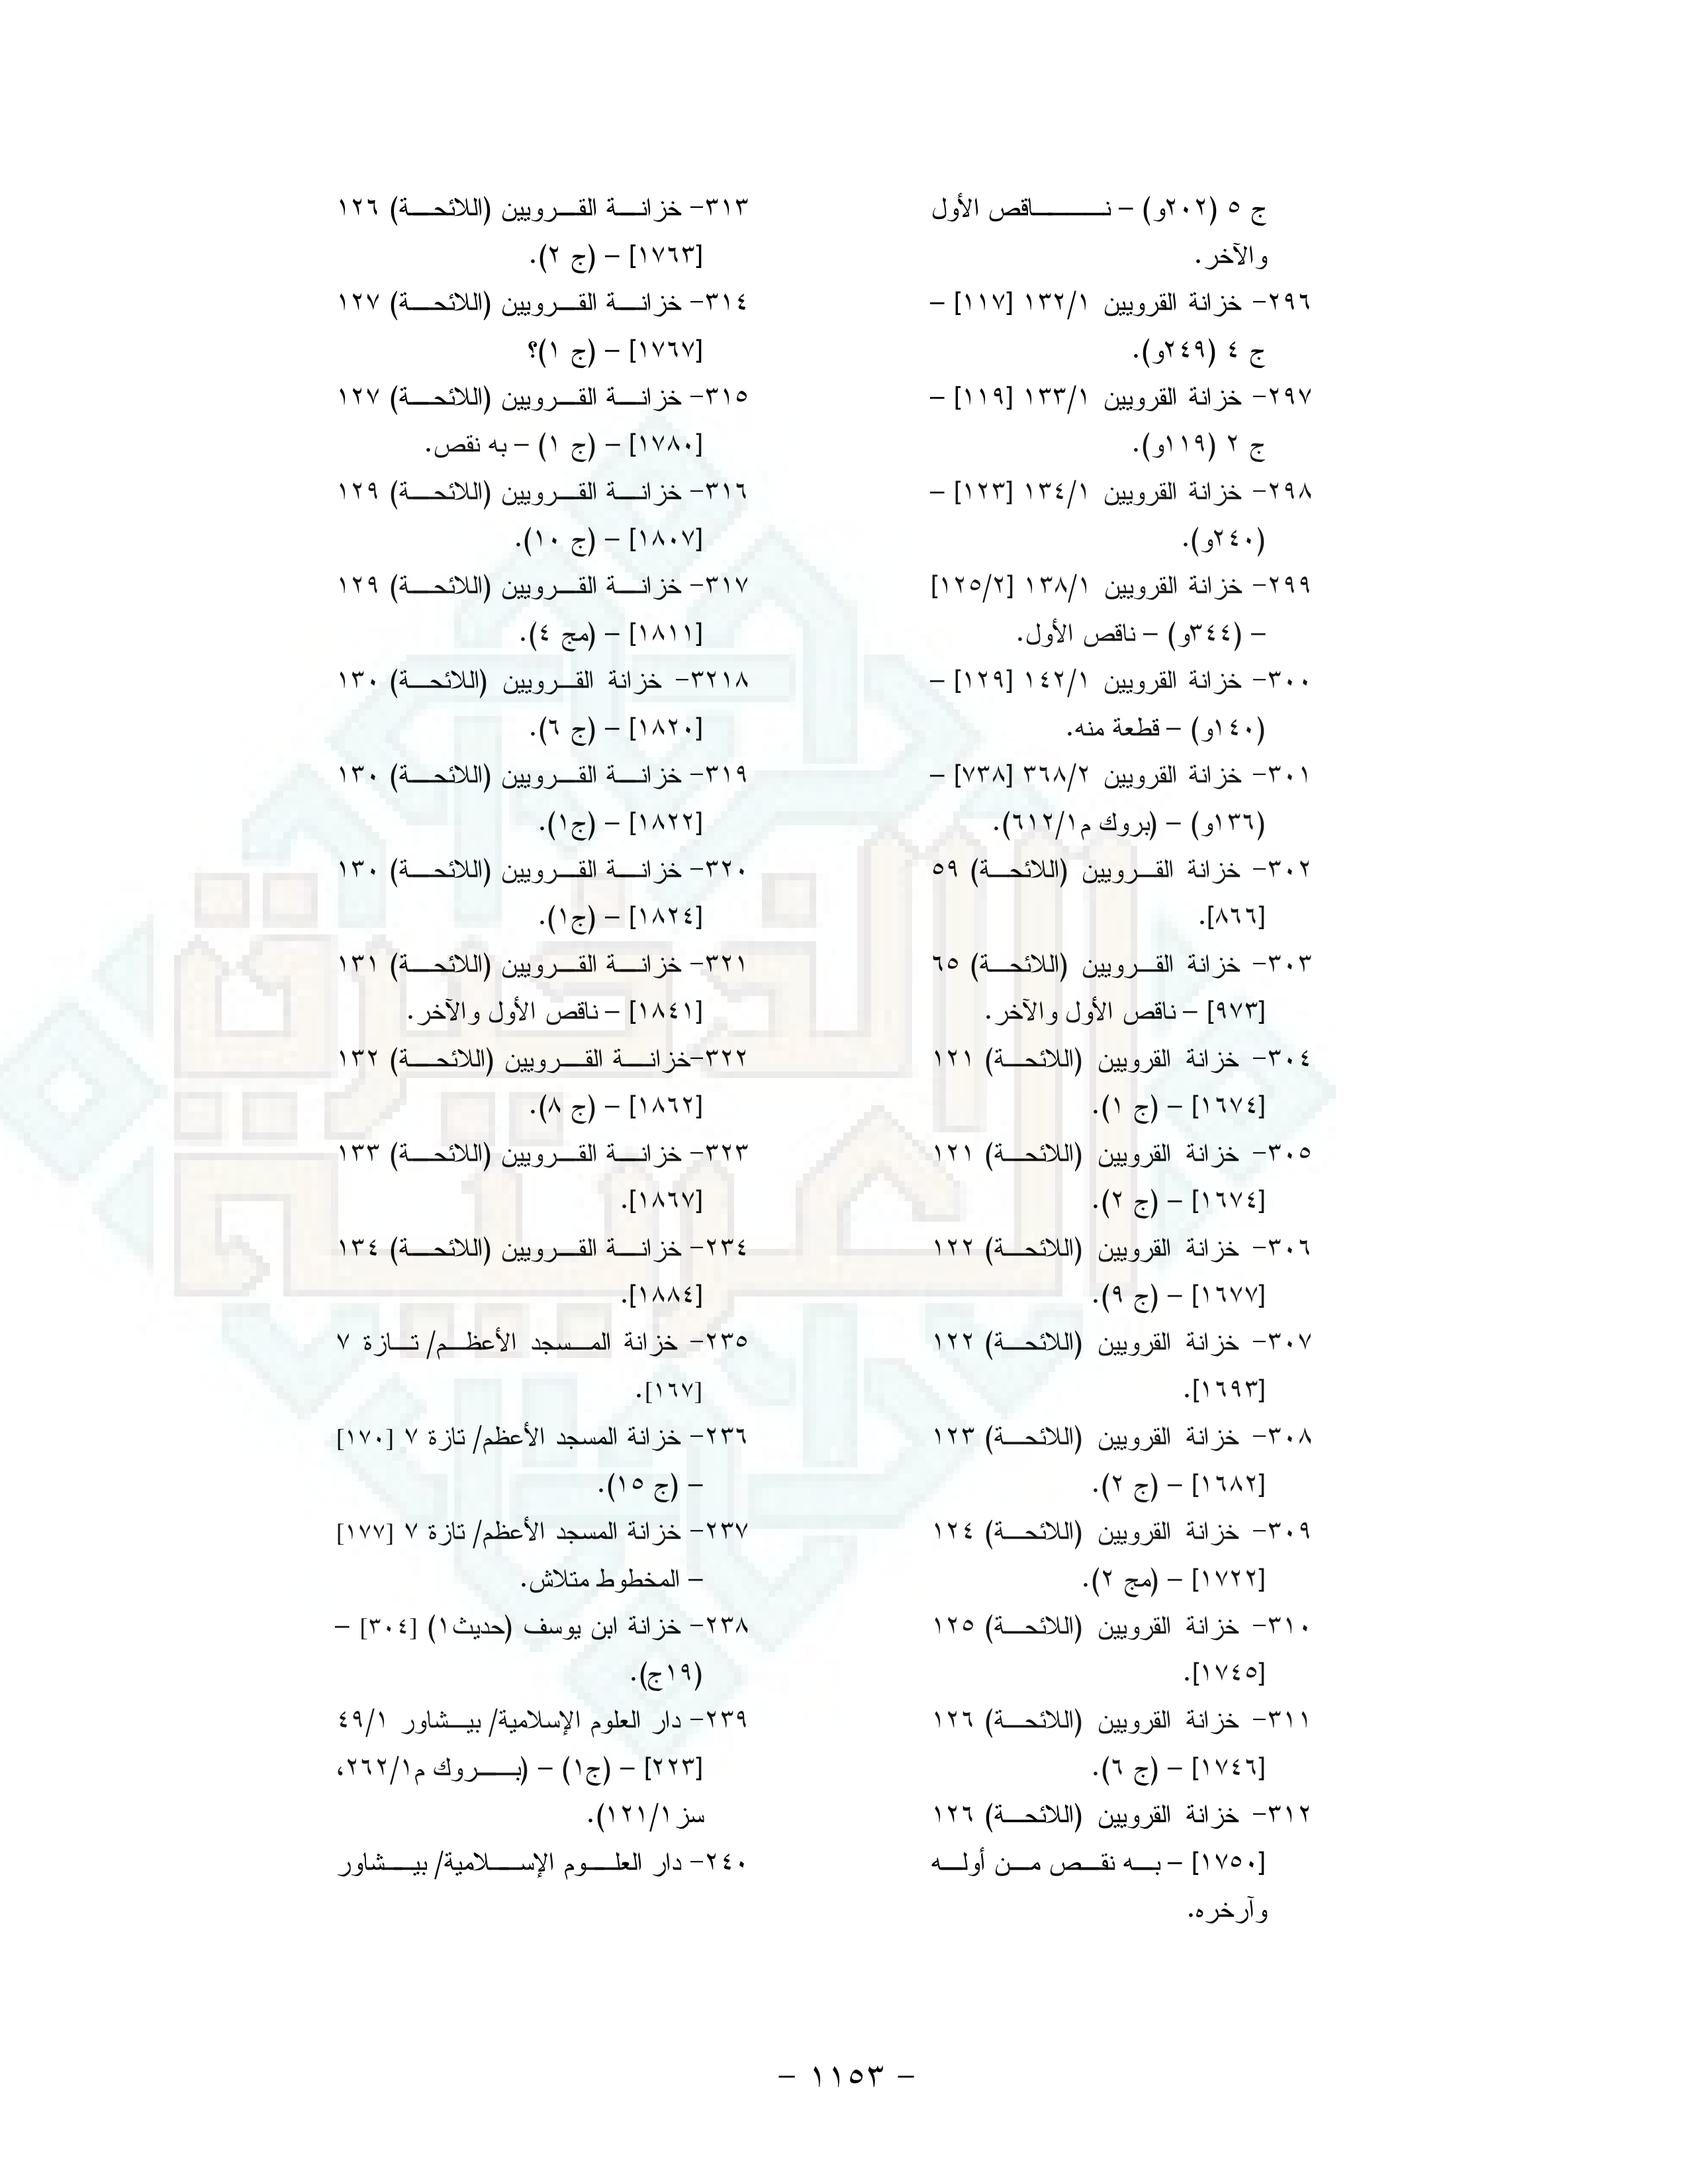 ج ٥ (٢٠٢و) – ناقص الأول
والآخر.
٢٩٦- خزانة القرويين ١٣٢/١ [١١٧] –
ج ٤ (٢٤٩و).
٢٩٧- خزانة القرويين ١٣٣/١ [١١٩] –
ج ٢ (١١٩و).
٢٩٨- خزانة القرويين ١٣٤/١ [١٢٣] –
(٢٤٠و).
٢٩٩- خزانة القرويين ١٣٨/١ [١٢٥/٢]
– (٣٤٤و) – ناقص الأول.
٣٠٠- خزانة القرويين ١٤٢/١ [١٢٩] –
(١٤٠و) – قطعة منه.
٣٠١- خزانة القرويين ٣٦٨/٢ [٧٣٨] –
(١٣٦و) – (بروك م٦١٢/١).
٣٠٢- خزانة القرويين (اللائحة) ٥٩
[٨٦٦].
٣٠٣- خزانة القرويين (اللائحة) ٦٥
[٩٧٣] – ناقص الأول والآخر.
٣٠٤- خزانة القرويين (اللائحة) ١٢١
[١٦٧٤] – (ج ١).
٣٠٥- خزانة القرويين (اللائحة) ١٢١
[١٦٧٤] – (ج ٢).
٣٠٦- خزانة القرويين (اللائحة) ١٢٢
[١٦٧٧] – (ج ٩).
٣٠٧- خزانة القرويين (اللائحة) ١٢٢
[١٦٩٣].
٣٠٨- خزانة القرويين (اللائحة) ١٢٣
[١٦٨٢] – (ج ٢).
٣٠٩- خزانة القرويين (اللائحة) ١٢٤
[١٧٢٢] – (مج ٢).
٣١٠- خزانة القرويين (اللائحة) ١٢٥
[١٧٤٥].
٣١١- خزانة القرويين (اللائحة) ١٢٦
[١٧٤٦] – (ج ٦).
٣١٢- خزانة القرويين (اللائحة) ١٢٦
[١٧٥٠] – به نقص من أوله
وآرخره.
٣١٣- خزانة القرويين (اللائحة) ١٢٦
[١٧٦٣] – (ج ٢).
٣١٤- خزانة القرويين (اللائحة) ١٢٧
[١٧٦٧] – (ج ١)؟
٣١٥- خزانة القرويين (اللائحة) ١٢٧
[١٧٨٠] – (ج ١) – به نقص.
٣١٦- خزانة القرويين (اللائحة) ١٢٩
[١٨٠٧] – (ج ١٠).
٣١٧- خزانة القرويين (اللائحة) ١٢٩
[١٨١١] – (مج ٤).
٣٢١٨- خزانة القرويين (اللائحة) ١٣٠
[١٨٢٠] – (ج ٦).
٣١٩- خزانة القرويين (اللائحة) ١٣٠
[١٨٢٢] – (ج١).
٣٢٠- خزانة القرويين (اللائحة) ١٣٠
[١٨٢٤] – (ج١).
٣٢١- خزانة القرويين (اللائحة) ١٣١
[١٨٤١] – ناقص الأول والآخر.
٣٢٢-خزانة القرويين (اللائحة) ١٣٢
[١٨٦٢] – (ج ٨).
٣٢٣- خزانة القرويين (اللائحة) ١٣٣
[١٨٦٧].
٢٣٤- خزانة القرويين (اللائحة) ١٣٤
[١٨٨٤].
٢٣٥- خزانة المسجد الأعظم/ تازة ٧
[١٦٧].
٢٣٦- خزانة المسجد الأعظم/ تازة ٧ [١٧٠]
– (ج ١٥).
٢٣٧- خزانة المسجد الأعظم/ تازة ٧ [١٧٧]
– المخطوط متلاش.
٢٣٨- خزانة ابن يوسف (حديث١) [٣٠٤] –
(١٩ج).
٢٣٩- دار العلوم الإسلامية/ بيشاور ٤٩/١
[٢٢٣] – (ج١) – (بروك م٢٦٢/١،
سز ١٢١/١).
٢٤٠- دار العلوم الإسلامية/ بيشاور
– ١١٥٣ –
الذخيرة
العربية